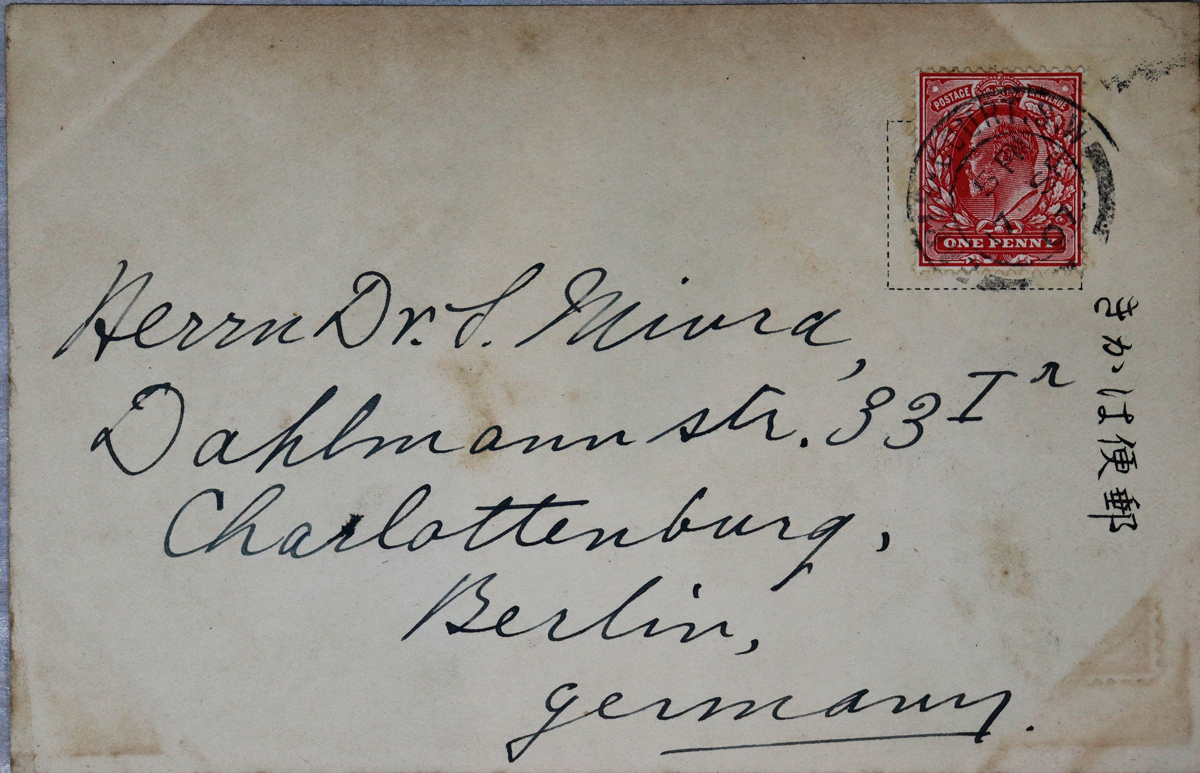 POSTAGE REVENUE
ONE PENNY
Herrn Dr. S. Miura,
Dahlmann str. 33 I r
Charlottenburg,
Berlin,
Germany.
きかは便郵